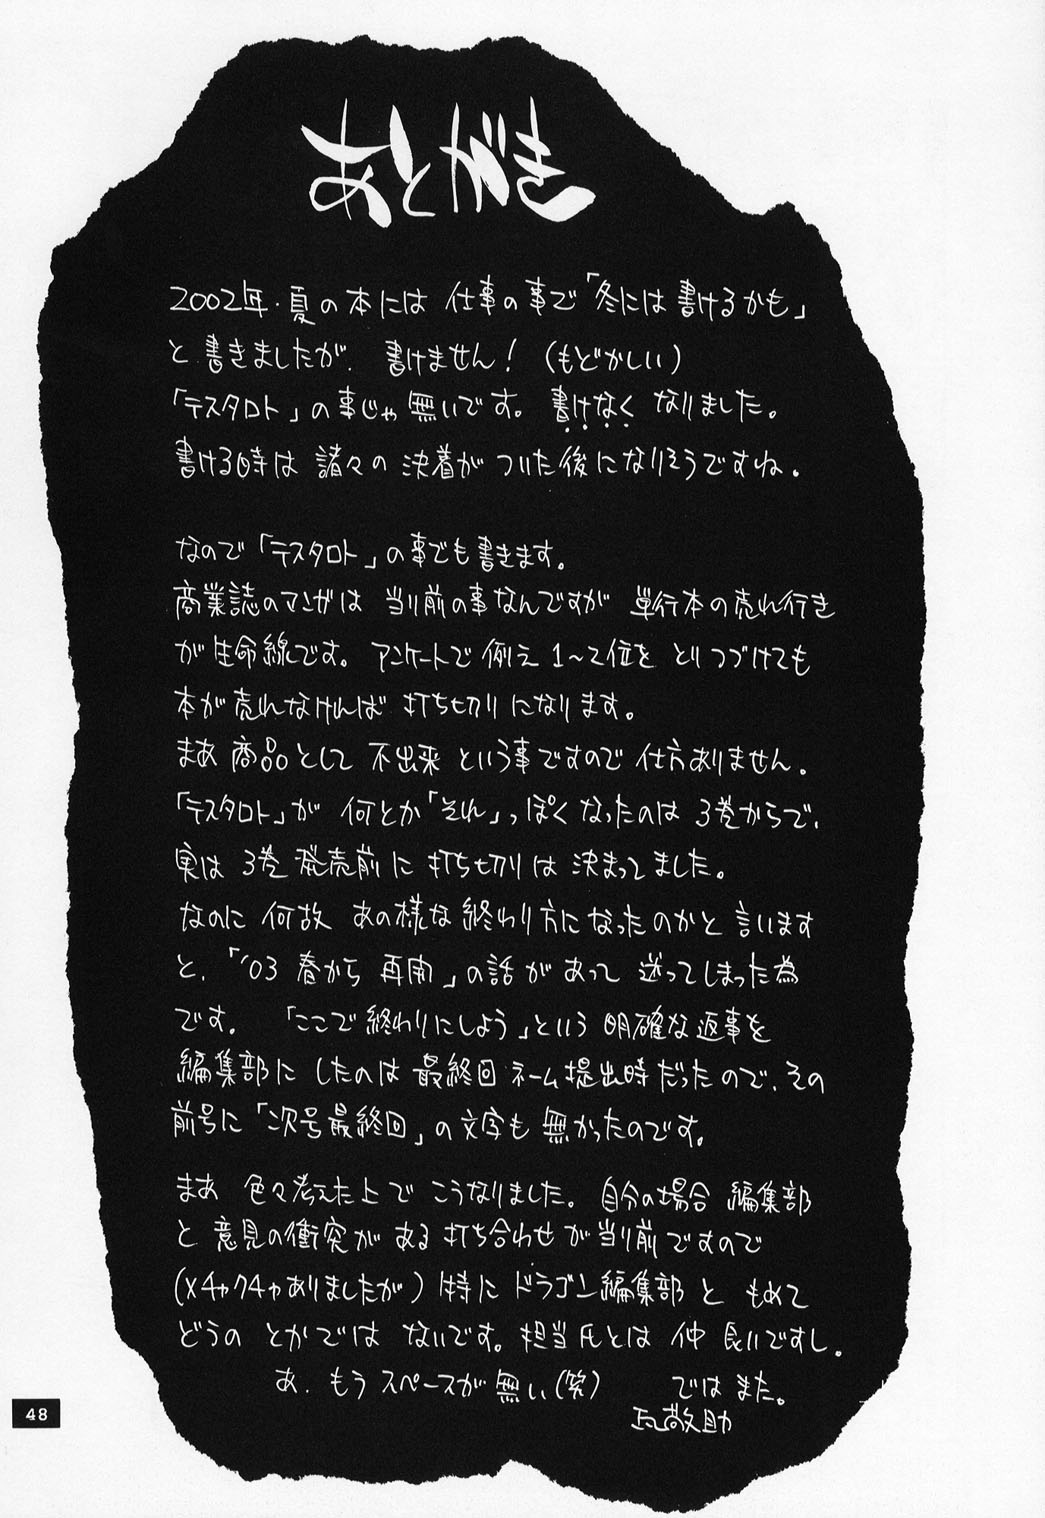 あとがき
2002年・夏の本には 仕事の事で「冬には書けるかも」
と書きましたが、書けません！（もどかしい）
「テスタロト」の事じゃ無いです。書けなくなりました。
書ける時は 諸々の決着がついた後になりそうですね。
なので「テスタロト」の事でも書きます。
商業誌のマンガは 当り前の事なんですが 単行本の売れ行き
が生命線です。アンケートで例え1〜2位をとりつづけても
本が売れなければ打ち切りになります。
まあ商品として不出来という事ですので仕方ありません。
「テスタロト」が何とか「それ」っぽくなったのは3巻からで、
実は3巻発売前に打ち切りは決まってました。
なのに何故あの様な終わり方になったのかと言います
と、「'03春から再開」の話があって迷ってしまった為
です。「ここで終わりにしよう」という明確な返事を
編集部にしたのは最終回ネーム提出時だったので、その
前号に「次号最終回」の文字も無かったのです。
まあ 色々考えた上でこうなりました。自分の場合 編集部
と意見の衝突がある打ち合わせが当り前ですので
（メチャクチャありましたが）特にドラゴン編集部ともめて
どうのとかではないです。担当氏とは仲良いですし。
あ、もうスペースが無い（笑） ではまた。
瓦敬助
48